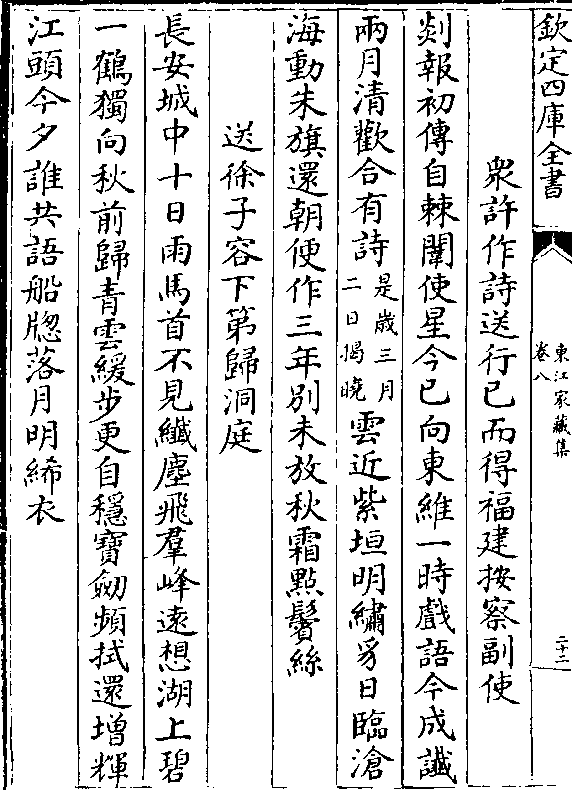 欽定四庫全書
東江家藏集
卷八
二十二
衆許作詩送行已而得福建按察副使
剡報初傳自棘闈使星今已向東維一時戲語今成讖
兩月清歡合有詩是歲三月二日揭曉雲近紫垣明繡豸日臨滄
海動朱旗還朝便作三年別未放秋霜點鬢絲
送徐子容下第歸洞庭
長安城中十日雨馬首不見纖塵飛羣峰遠想湖上碧
一鶴獨向秋前歸青雲緩步更自穩寶劒頻拭還增輝
江頭今夕誰共語船牎落月明絺衣